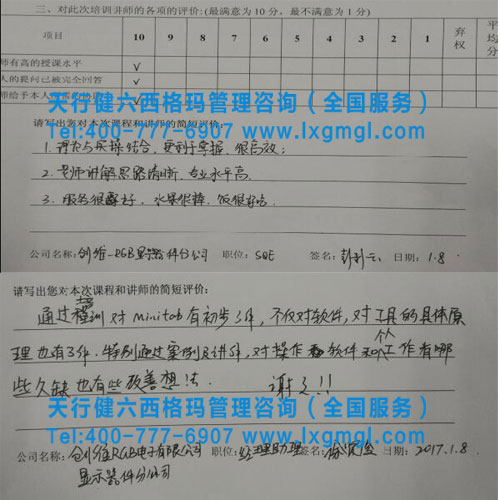 三、对此次培训讲师的各项的评价:(最满意为10分，最不满意为1分)
项目 10 9 8 7 6 5 4 3 2 1 弃权 平均分
师有高的授课水平 √
人的提问已被完全回答 √
师给予本人 √
天行健六西格玛管理咨询（全国服务）
Tel:400-777-6907 www.lxgmgl.com
请写出您对本次课程和讲师的简短评价:
1. 理力与实操结合，更利于掌握，很有效；
2. 老师讲解思路清晰，专业水平高.
3. 服务很好，水果很棒，饭很好吃.
公司名称: 创维-RGB显示器件分公司 职位: SQE 签名: 日期: 1.8.
请写出您对本次课程和讲师的简短评价:
通过培训对minitab有初步了解，不仅对软件，对工具的具体原
理也有了解.特别通过案例及讲解，对操作软件和个工作有哪
些欠缺也有些改善想法. 谢谢!!
天行健六西格玛管理咨询（全国服务）
Tel:400-777-6907 www.lxgmgl.com
公司名称: 创维RGB电子有限公司 职位: 经理助理 签名: 日期: 2017.1.8.
显示器件分公司